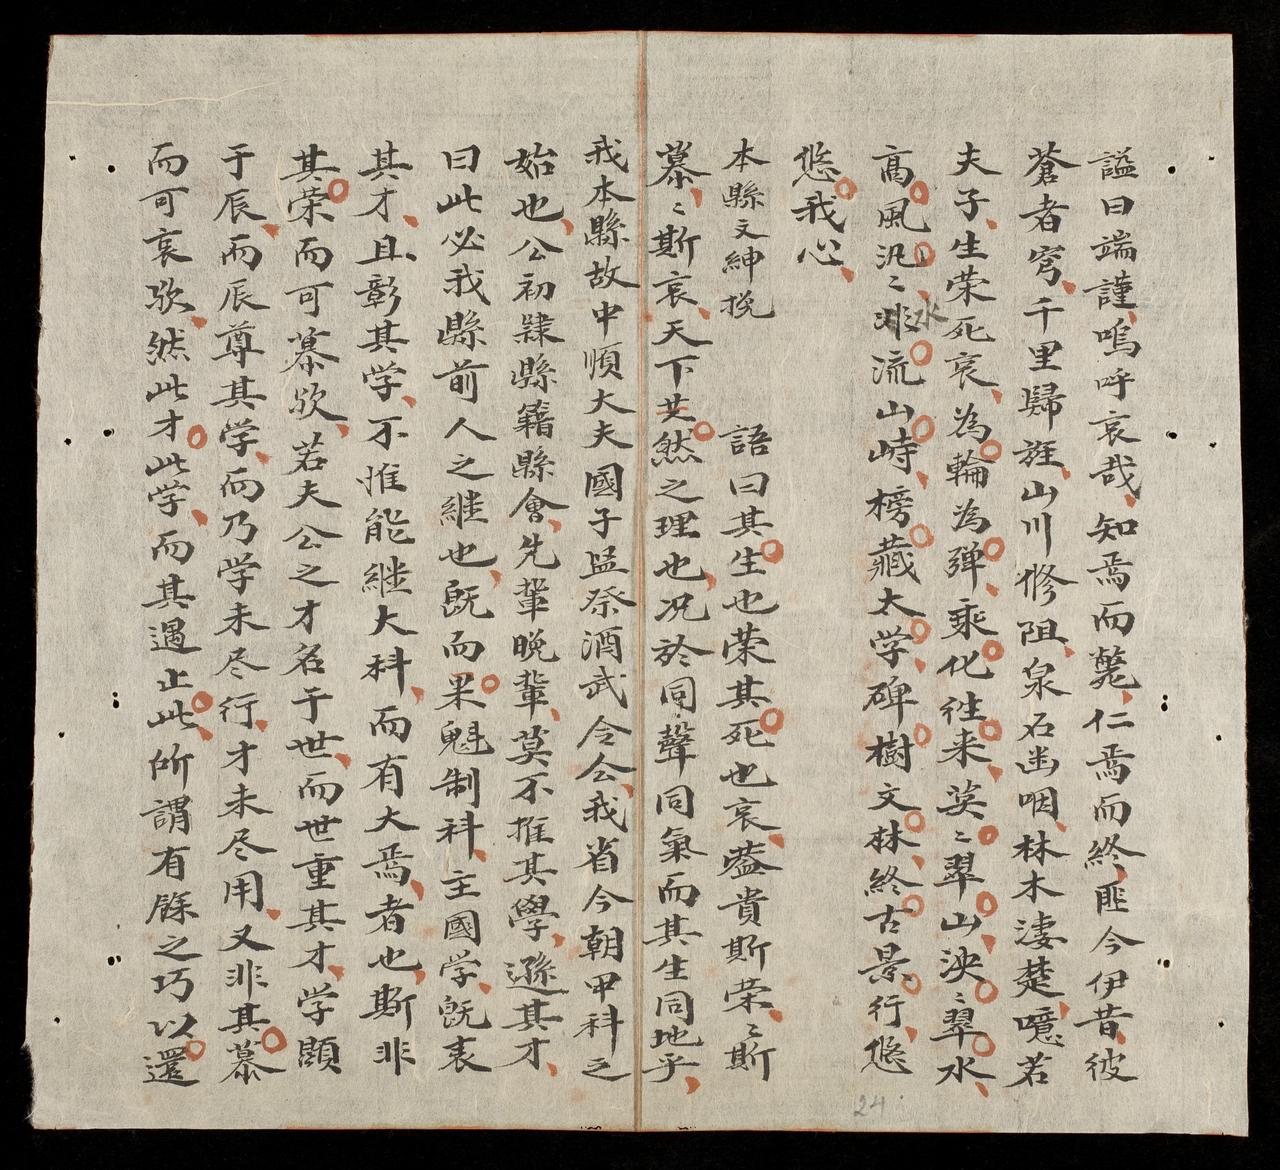 謚曰端謹嗚呼哀哉知焉而薨仁焉而終匪今伊昔彼
蒼者穹千里歸旌山川修阻泉石幽咽林木淒楚噫若
夫子生荣死哀為輪為彈乘化徃来莫〻翠山泱〻翠水
高風汎〻非水流山峙榜藏太学碑樹文林終古景行悠
悠我心
本縣文紳挽
語曰其生也荣其死也哀葢貴斯荣〻斯
慕〻斯哀天下共然之理也况於同聲同氣而其生同地乎
我本縣故中順大夫國子監祭酒武令公我省今朝甲科之
始也公初隸縣籍縣會先輩晚輩莫不推其學遜其才
曰此必我縣前人之継也既而果魁制科主國学既表
其才且彰其学不惟能継大科而有大焉者也斯非
其荣而可慕欤若夫公之才名于世而世重其才学顕
于辰而辰尊其学而乃学未尽行才未尽用又非其慕
而可哀欤然此才此学而其遇止此所謂有餘之巧以還
24